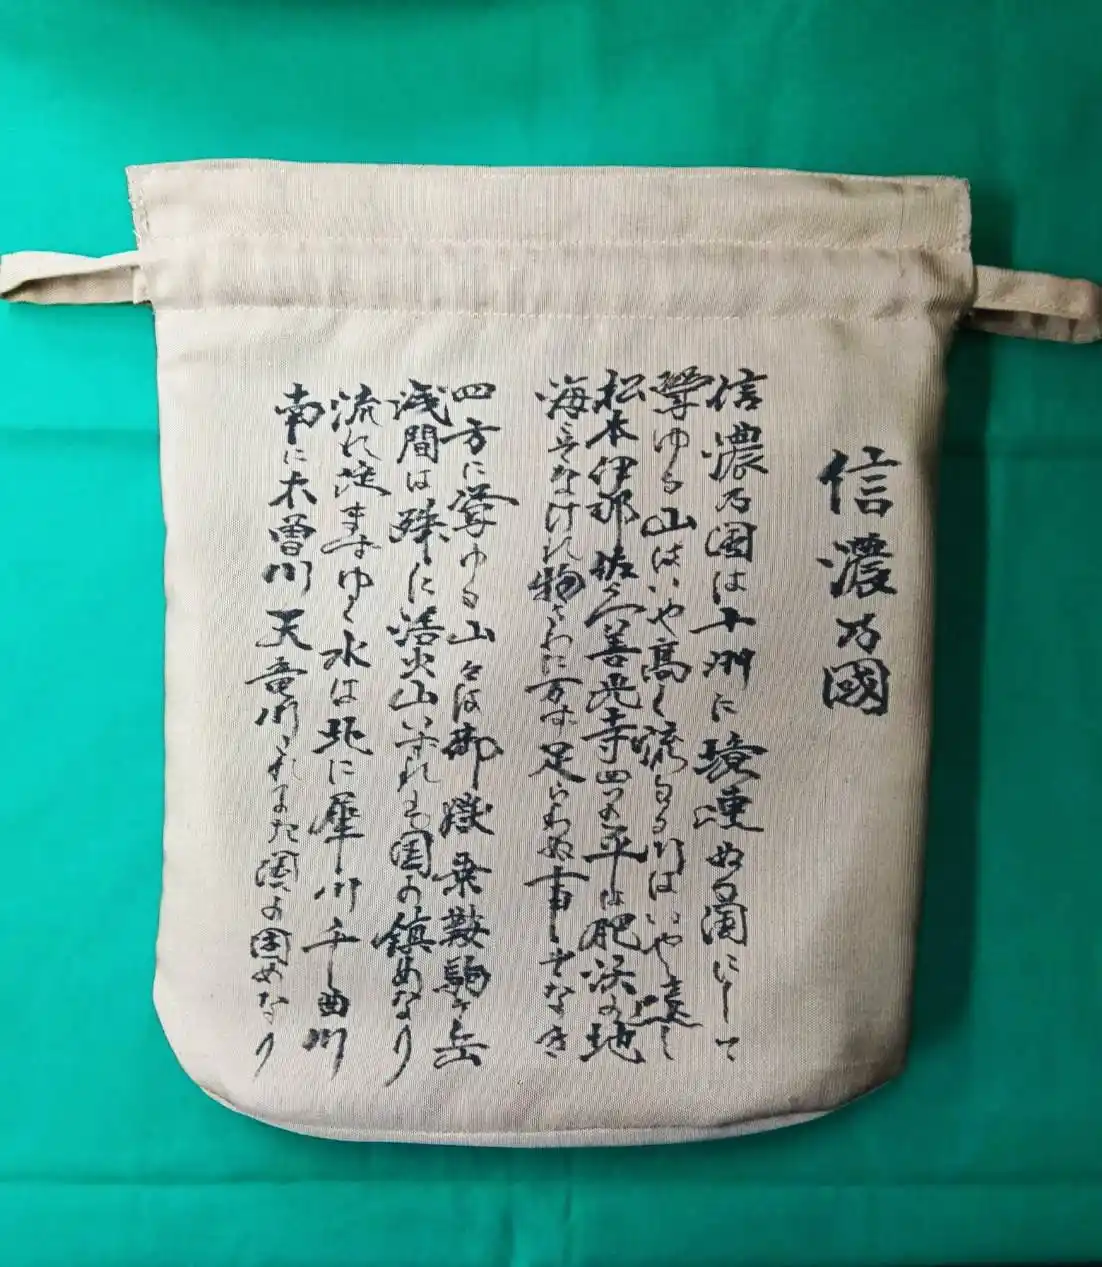 信濃乃國
信濃乃国は十州に境連ぬる国にして
聳ゆる山はいや高く流るる川はいや遠し
松本伊那佐久善光寺四つの平は肥沃の地
海こそなけれ物さわに万ず足らわぬ事しぞなき
四方に聳ゆる山々は御嶽乗鞍駒ヶ岳
浅間は殊に活火山いずれも国の鎮めなり
流れ淀まずゆく水は北に犀川千曲川
南に木曽川天竜川これまた国の固めなり